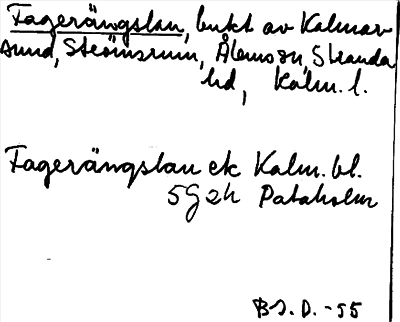 Fagerängslau, bukt av Kalmar-
sund, Strömsrum, Ålems sn, Stranda
hd, Kalm. l.
Fagerängslau ek Kalm. bl.
5G2h Pataholm
B.J.D. -55